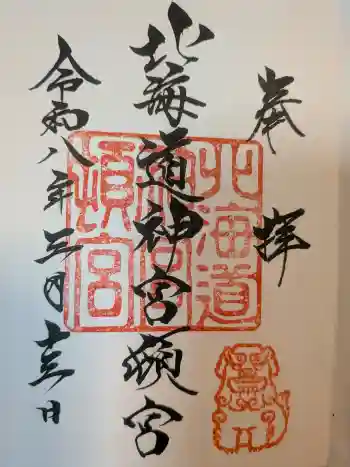 奉拝
北海道神宮頓宮
令和八年三月十 日
北海道
神宮
頓宮